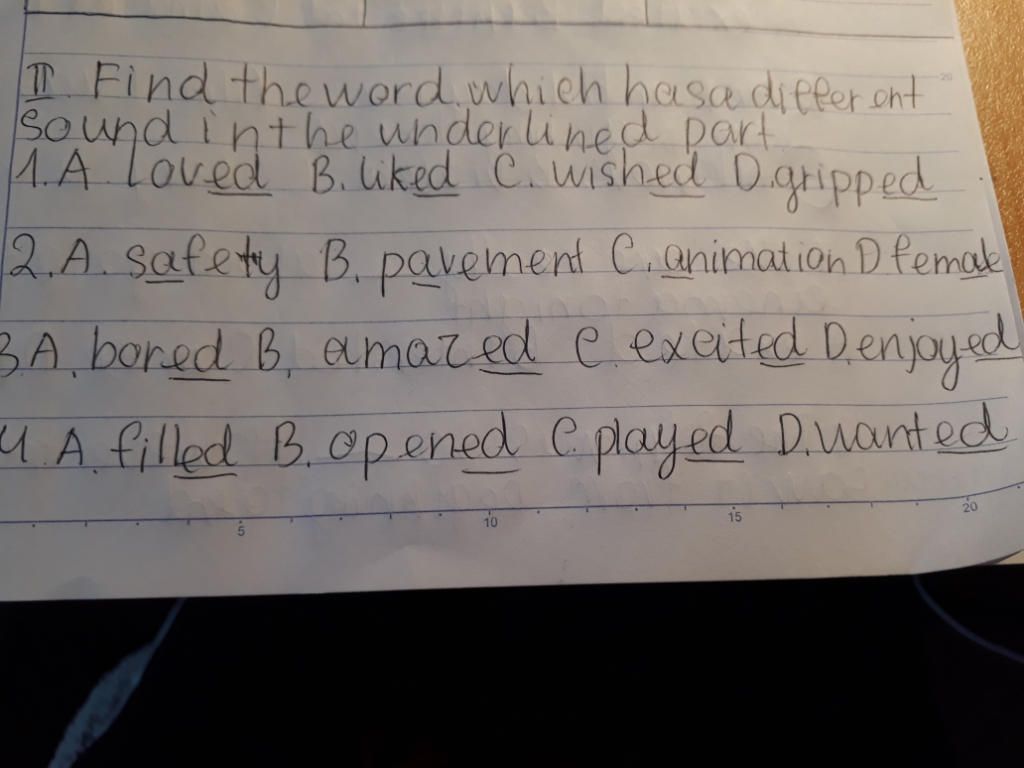 II Find the word which has a different
sound in the underlined part
1. A Loved B. liked C. wished D. gripped
2. A. safety B. pavement C. animation D female
3 A. bored B. amazed C. excited D. enjoyed
4. A. filled B. opened C. played D. wanted
5 10 15 20